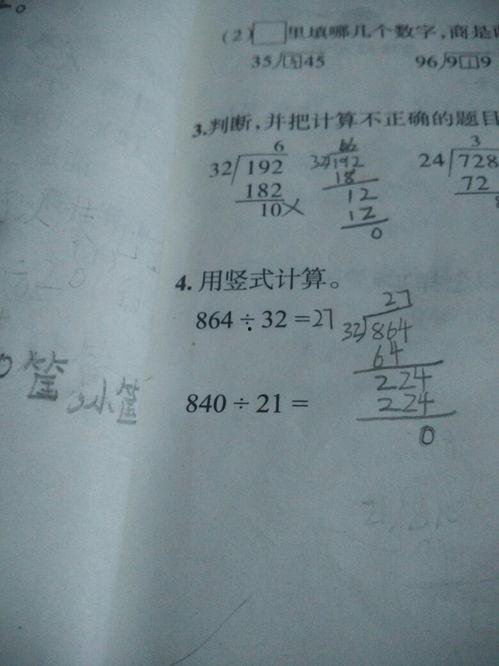 (2)□里填哪几个数字,商是
35 □45
96 9□9
3.判断,并把计算不正确的题目
6
32 192
182
10 ×
66
32 192
18
12
12
0
3
24 728
72
8
4. 用竖式计算。
864÷32=27
27
32 864
64
224
224
0
筐
小筐
840÷21=